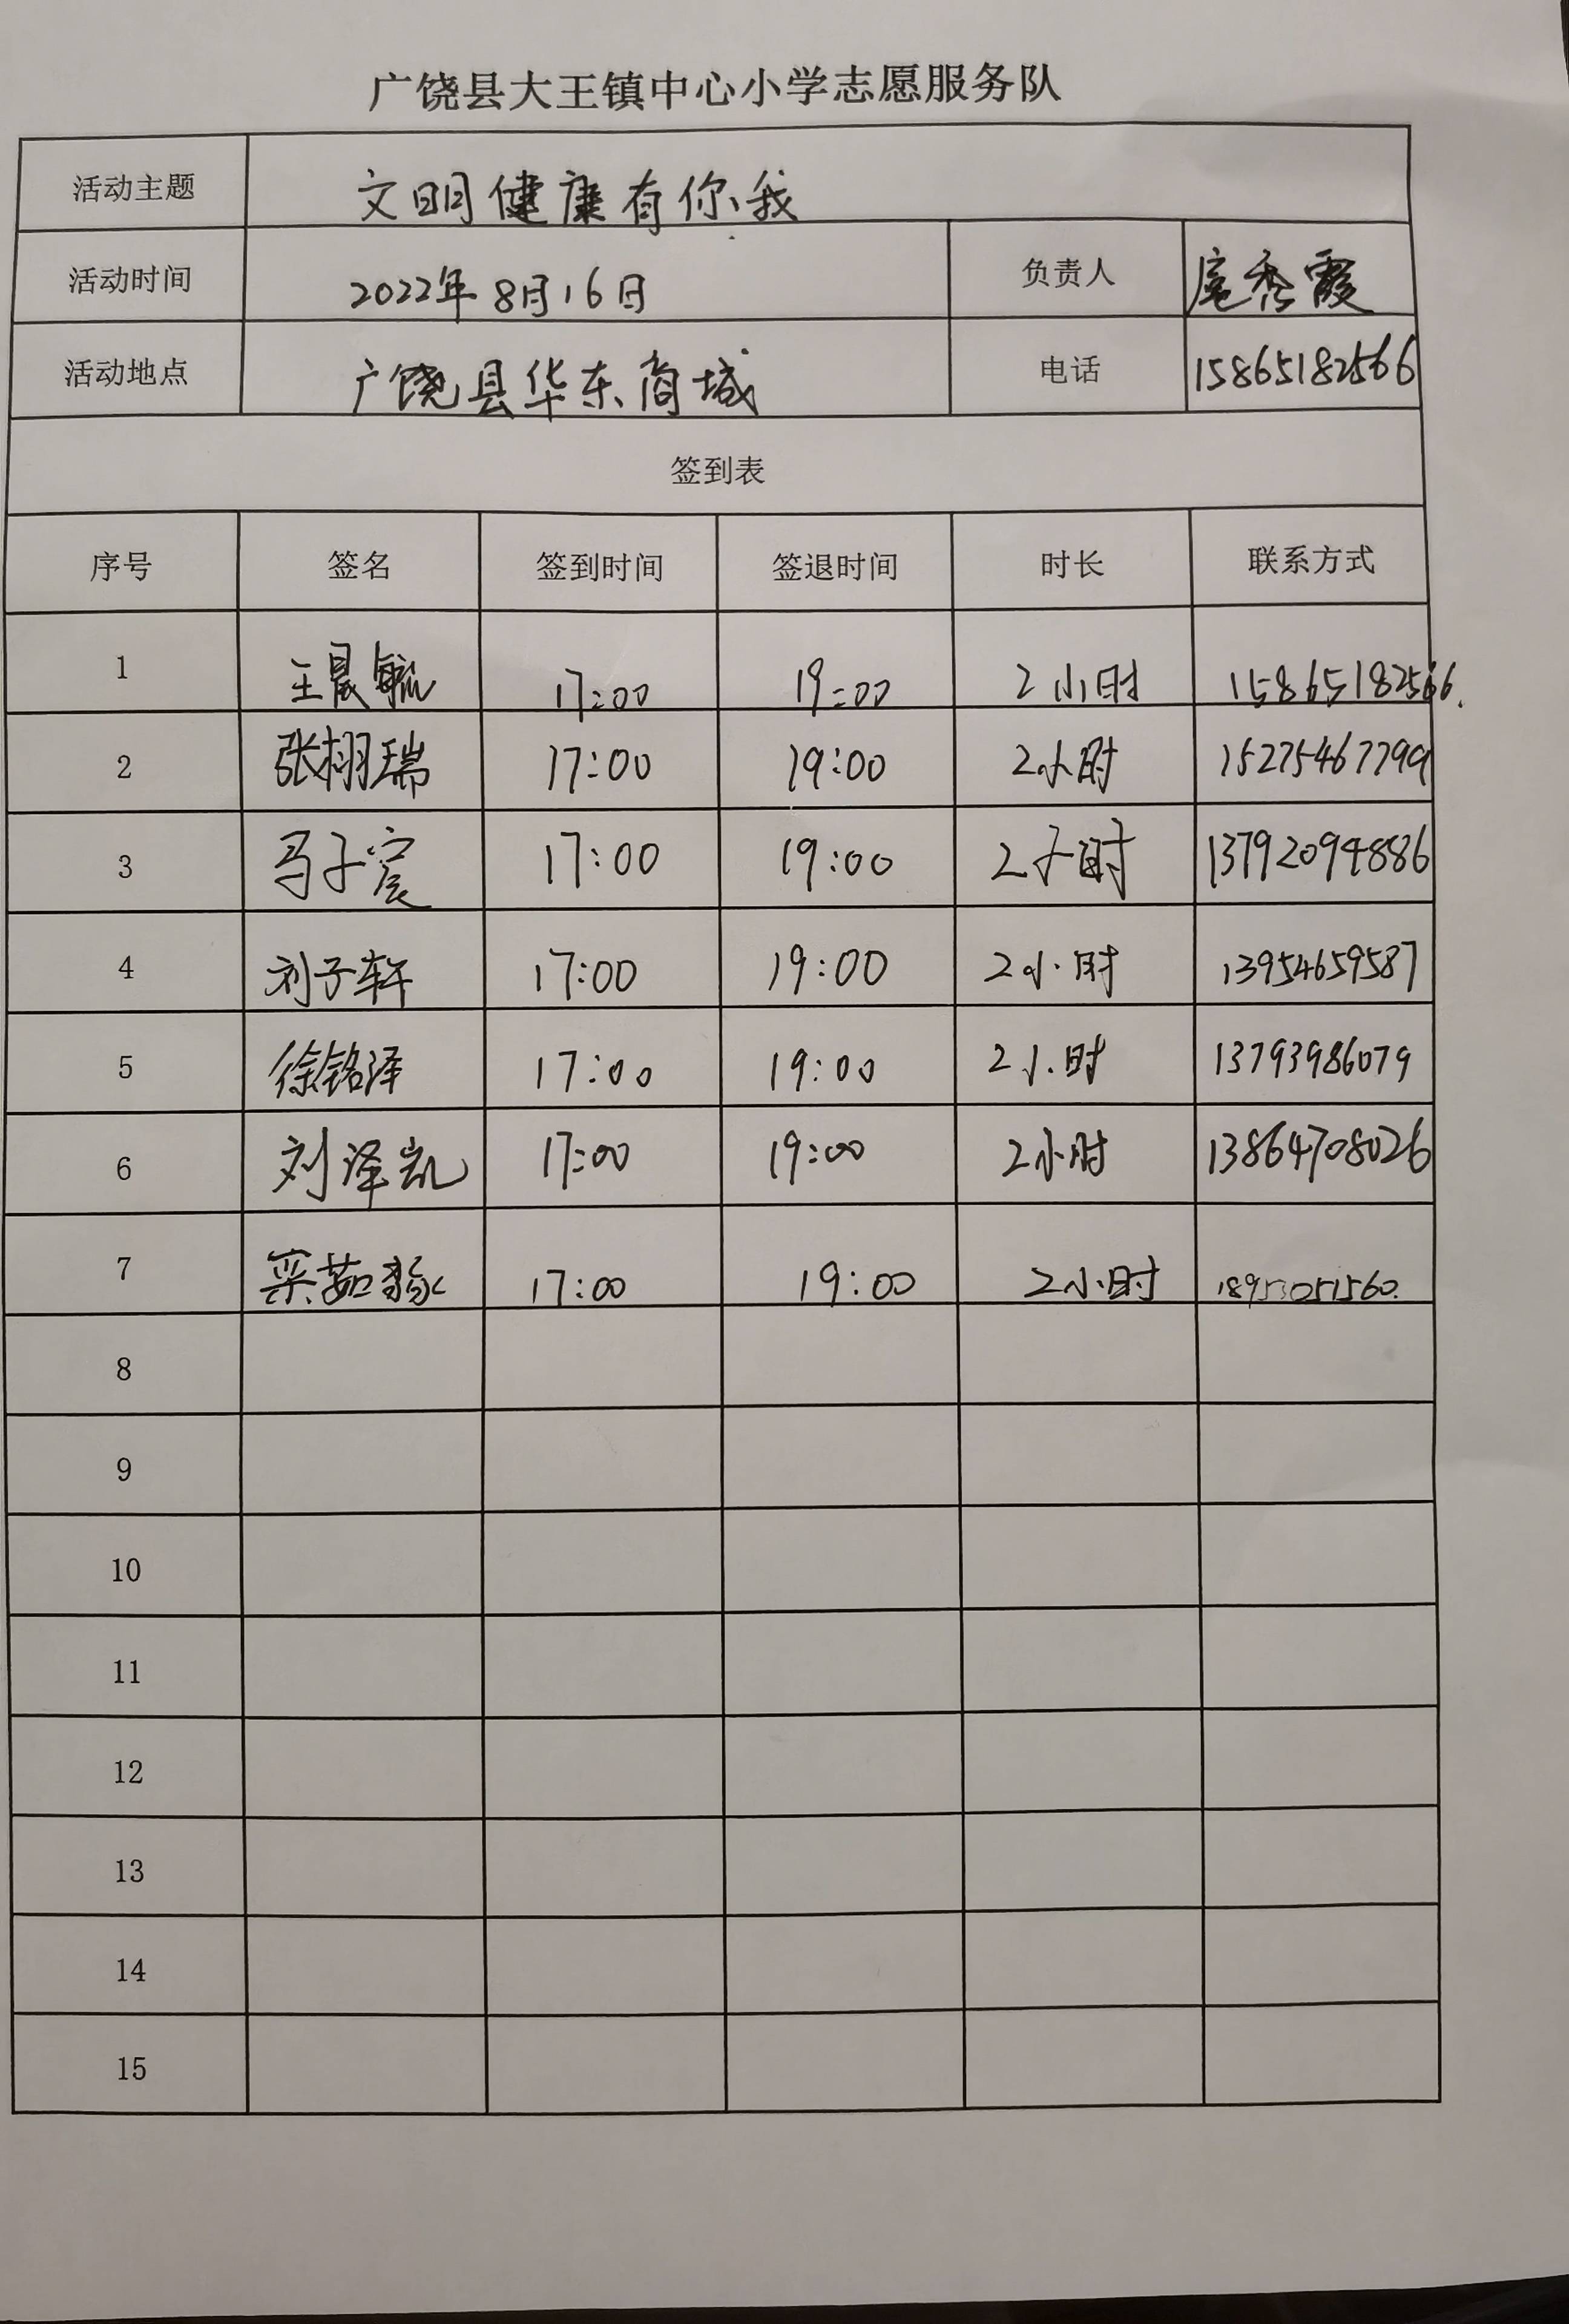 广饶县大王镇中心小学志愿服务队
活动主题 文明健康有你我
活动时间 2022年8月16日 负责人 扈秀霞
活动地点 广饶县华东商城 电话 15865182566
签到表
序号 签名 签到时间 签退时间 时长 联系方式
1 王晨毓 17:00 19:00 2小时 15865182566.
2 张栩瑞 17:00 19:00 2小时 15275467799
3 马子宸 17:00 19:00 2小时 13792094886
4 刘子轩 17:00 19:00 2小时 13954659587
5 徐铭泽 17:00 19:00 2小时 13793986079
6 刘泽凯 17:00 19:00 2小时 13864708026
7 17:00 19:00 2小时
8
9
10
11
12
13
14
15